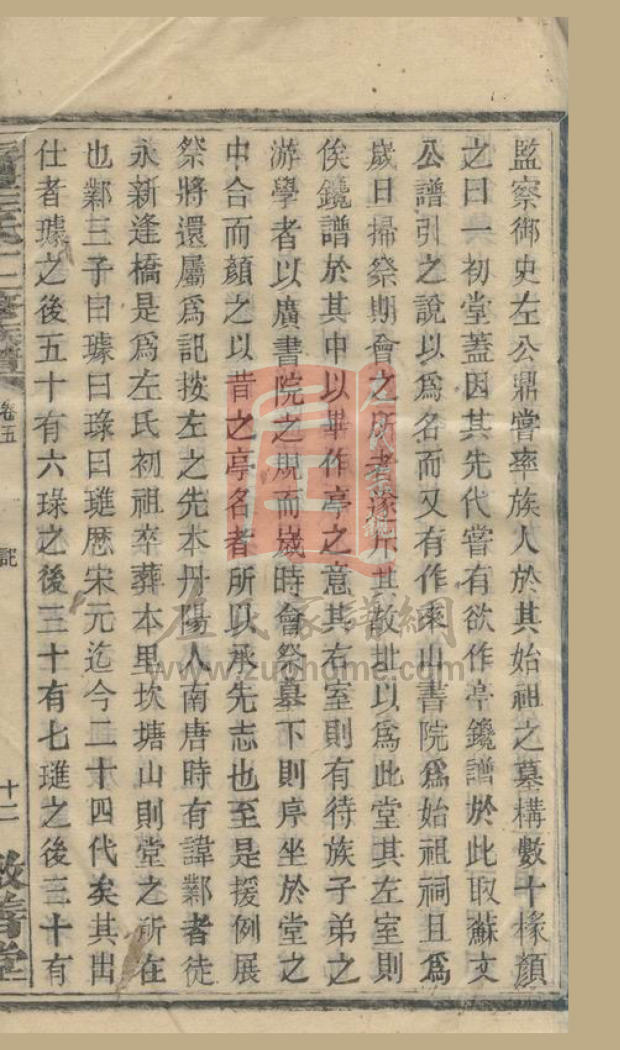 監察御史左公鼎嘗率族人於其始祖之墓構數十椽顏
之曰一初堂蓋因其先代嘗有欲作亭鑱譜於此取蘇文
公譜引之說以為名而又有作乘山書院為始祖祠且為
歲日掃祭期會之所者遂斥其故址以為此堂其左室則
俟鑱譜於其中以畢作亭之意其右室則有待族子弟之
游學者以廣書院之規而歲時會祭墓下則序坐於堂之
中合而顏之以昔之亭名者所以承先志也至是援例展
祭將還屬為記按左之先本丹陽人南唐時有諱鄴者徒
永新逢橋是為左氏初祖卒葬本里坎塘山則堂之所在
也鄴三子曰璩曰琭曰璡歷宋元迄今二十四代矣其出
仕者璩之後五十有六琭之後三十有七璡之後三十有
卷五
記
十二
敦善堂
左氏家譜網
www.zuohome.com